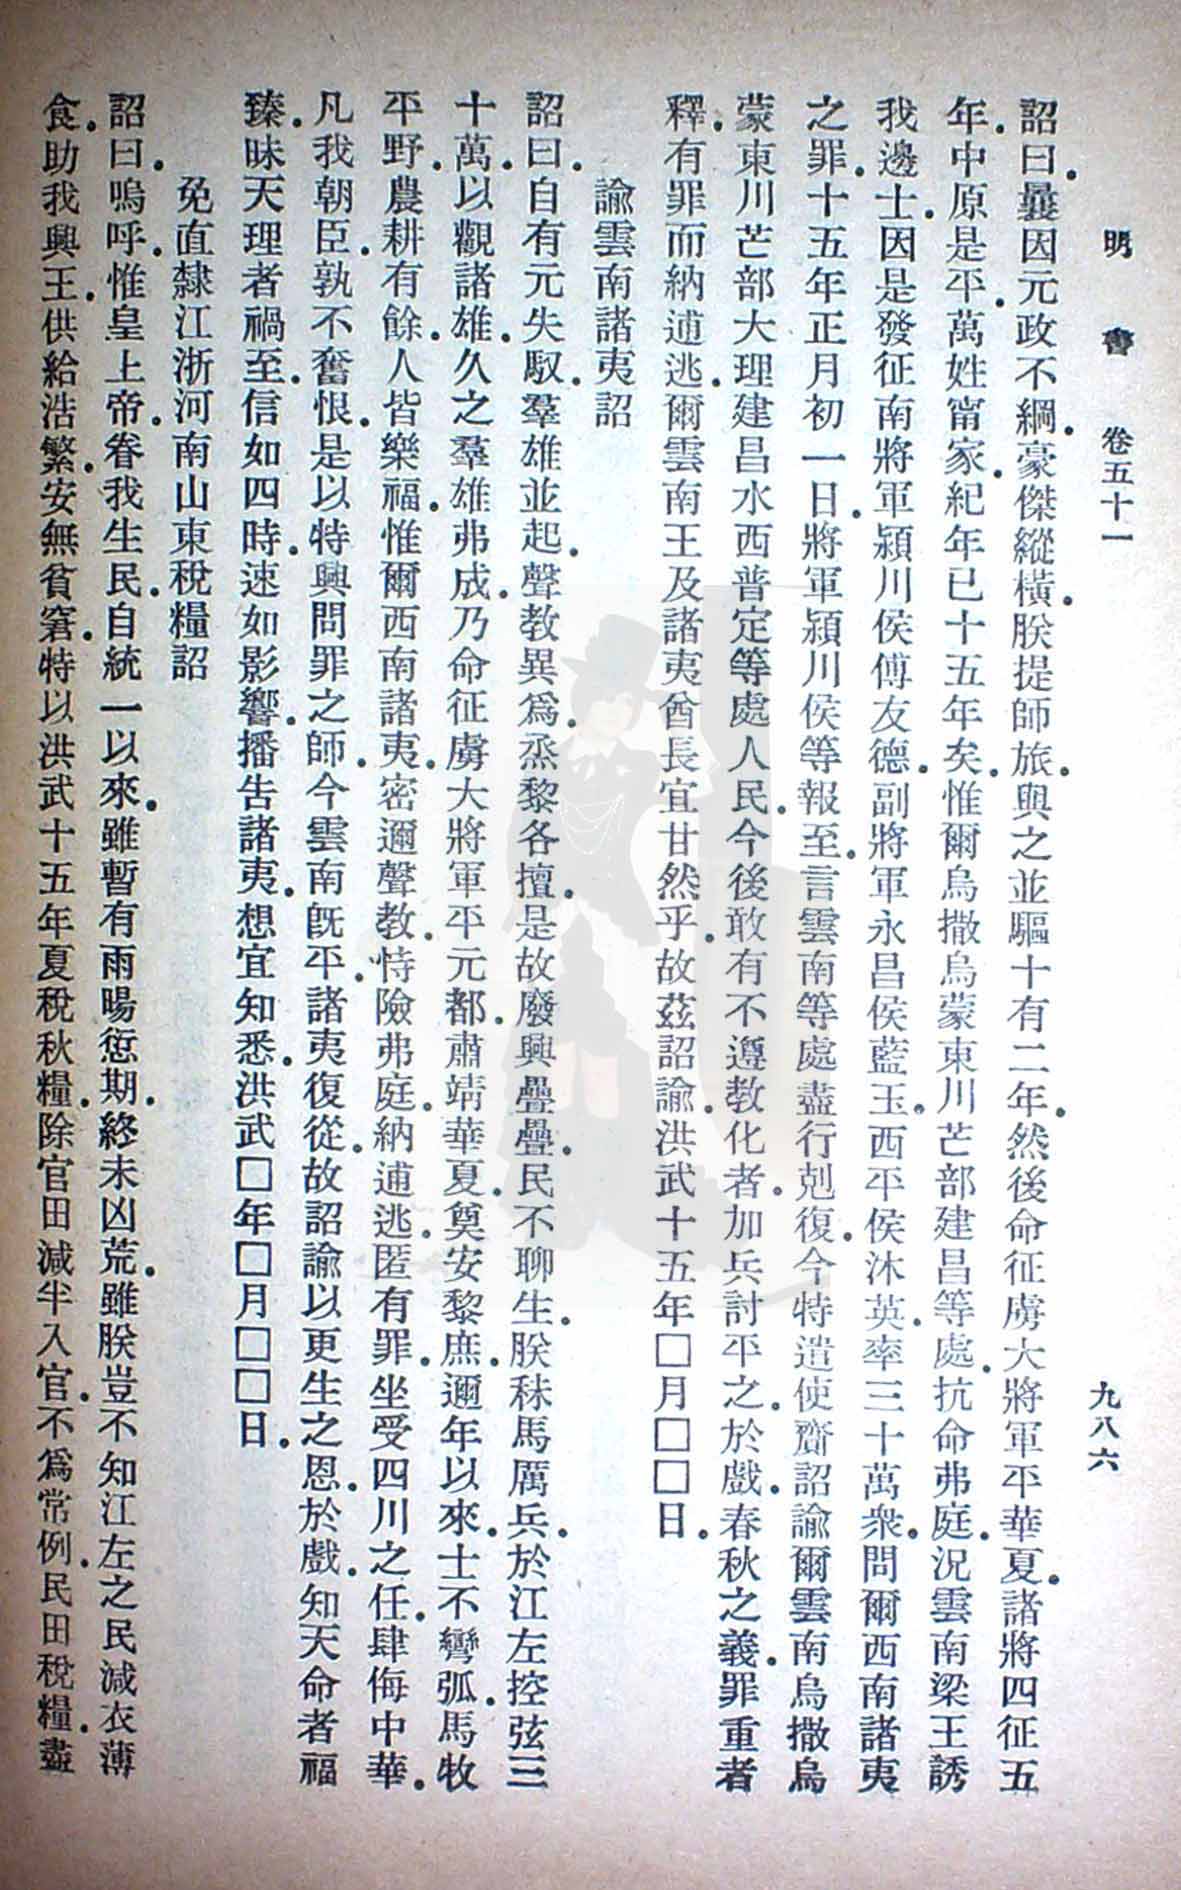 明書 卷五十一 九八六
詔曰．曩因元政不綱．豪傑縱橫．朕提師旅．與之並驅十有二年．然後命征虜大將軍平華夏．諸將四征五
年．中原是平．萬姓甯家．紀年已十五年矣．惟爾烏撒烏蒙東川芒部建昌等處．抗命弗庭．況雲南梁王誘
我邊士．因是發征南將軍潁川侯傅友德．副將軍永昌侯藍玉．西平侯沐英．率三十萬衆．問爾西南諸夷
之罪．十五年正月初一日．將軍潁川侯等報至．言雲南等處盡行剋復．今特遣使齎詔諭爾雲南烏撒烏
蒙東川芒部大理建昌水西普定等處人民．今後敢有不遵教化者．加兵討平之．於戲．春秋之義．罪重者
釋．有罪而納逋逃．爾雲南王及諸夷酋長宜甘然乎．故茲詔諭．洪武十五年□月□□日．
諭雲南諸夷詔
詔曰．自有元失馭．羣雄並起．聲教異爲．烝黎各擅．是故廢興疊疊．民不聊生．朕秣馬厲兵．於江左控弦三
十萬．以觀諸雄．久之羣雄弗成．乃命征虜大將軍平元都．肅靖華夏．奠安黎庶．邇年以來．士不彎弧．馬牧
平野．農耕有餘．人皆樂福．惟爾西南諸夷．密邇聲教．恃險弗庭．納逋逃．匿有罪．坐受四川之任．肆侮中華．
凡我朝臣．孰不奮恨．是以特興問罪之師．今雲南旣平．諸夷復從．故詔諭以更生之恩．於戲．知天命者福
臻．昧天理者禍至．信如四時．速如影響．播告諸夷．想宜知悉．洪武□年□月□□日．
免直隸江浙河南山東稅糧詔
詔曰．嗚呼．惟皇上帝．眷我生民．自統一以來．雖暫有雨暘愆期．終未凶荒．雖朕豈不知江左之民減衣薄
食．助我興王．供給浩繁．安無貧窘．特以洪武十五年夏稅秋糧．除官田減半入官．不爲常例．民田稅糧．盡